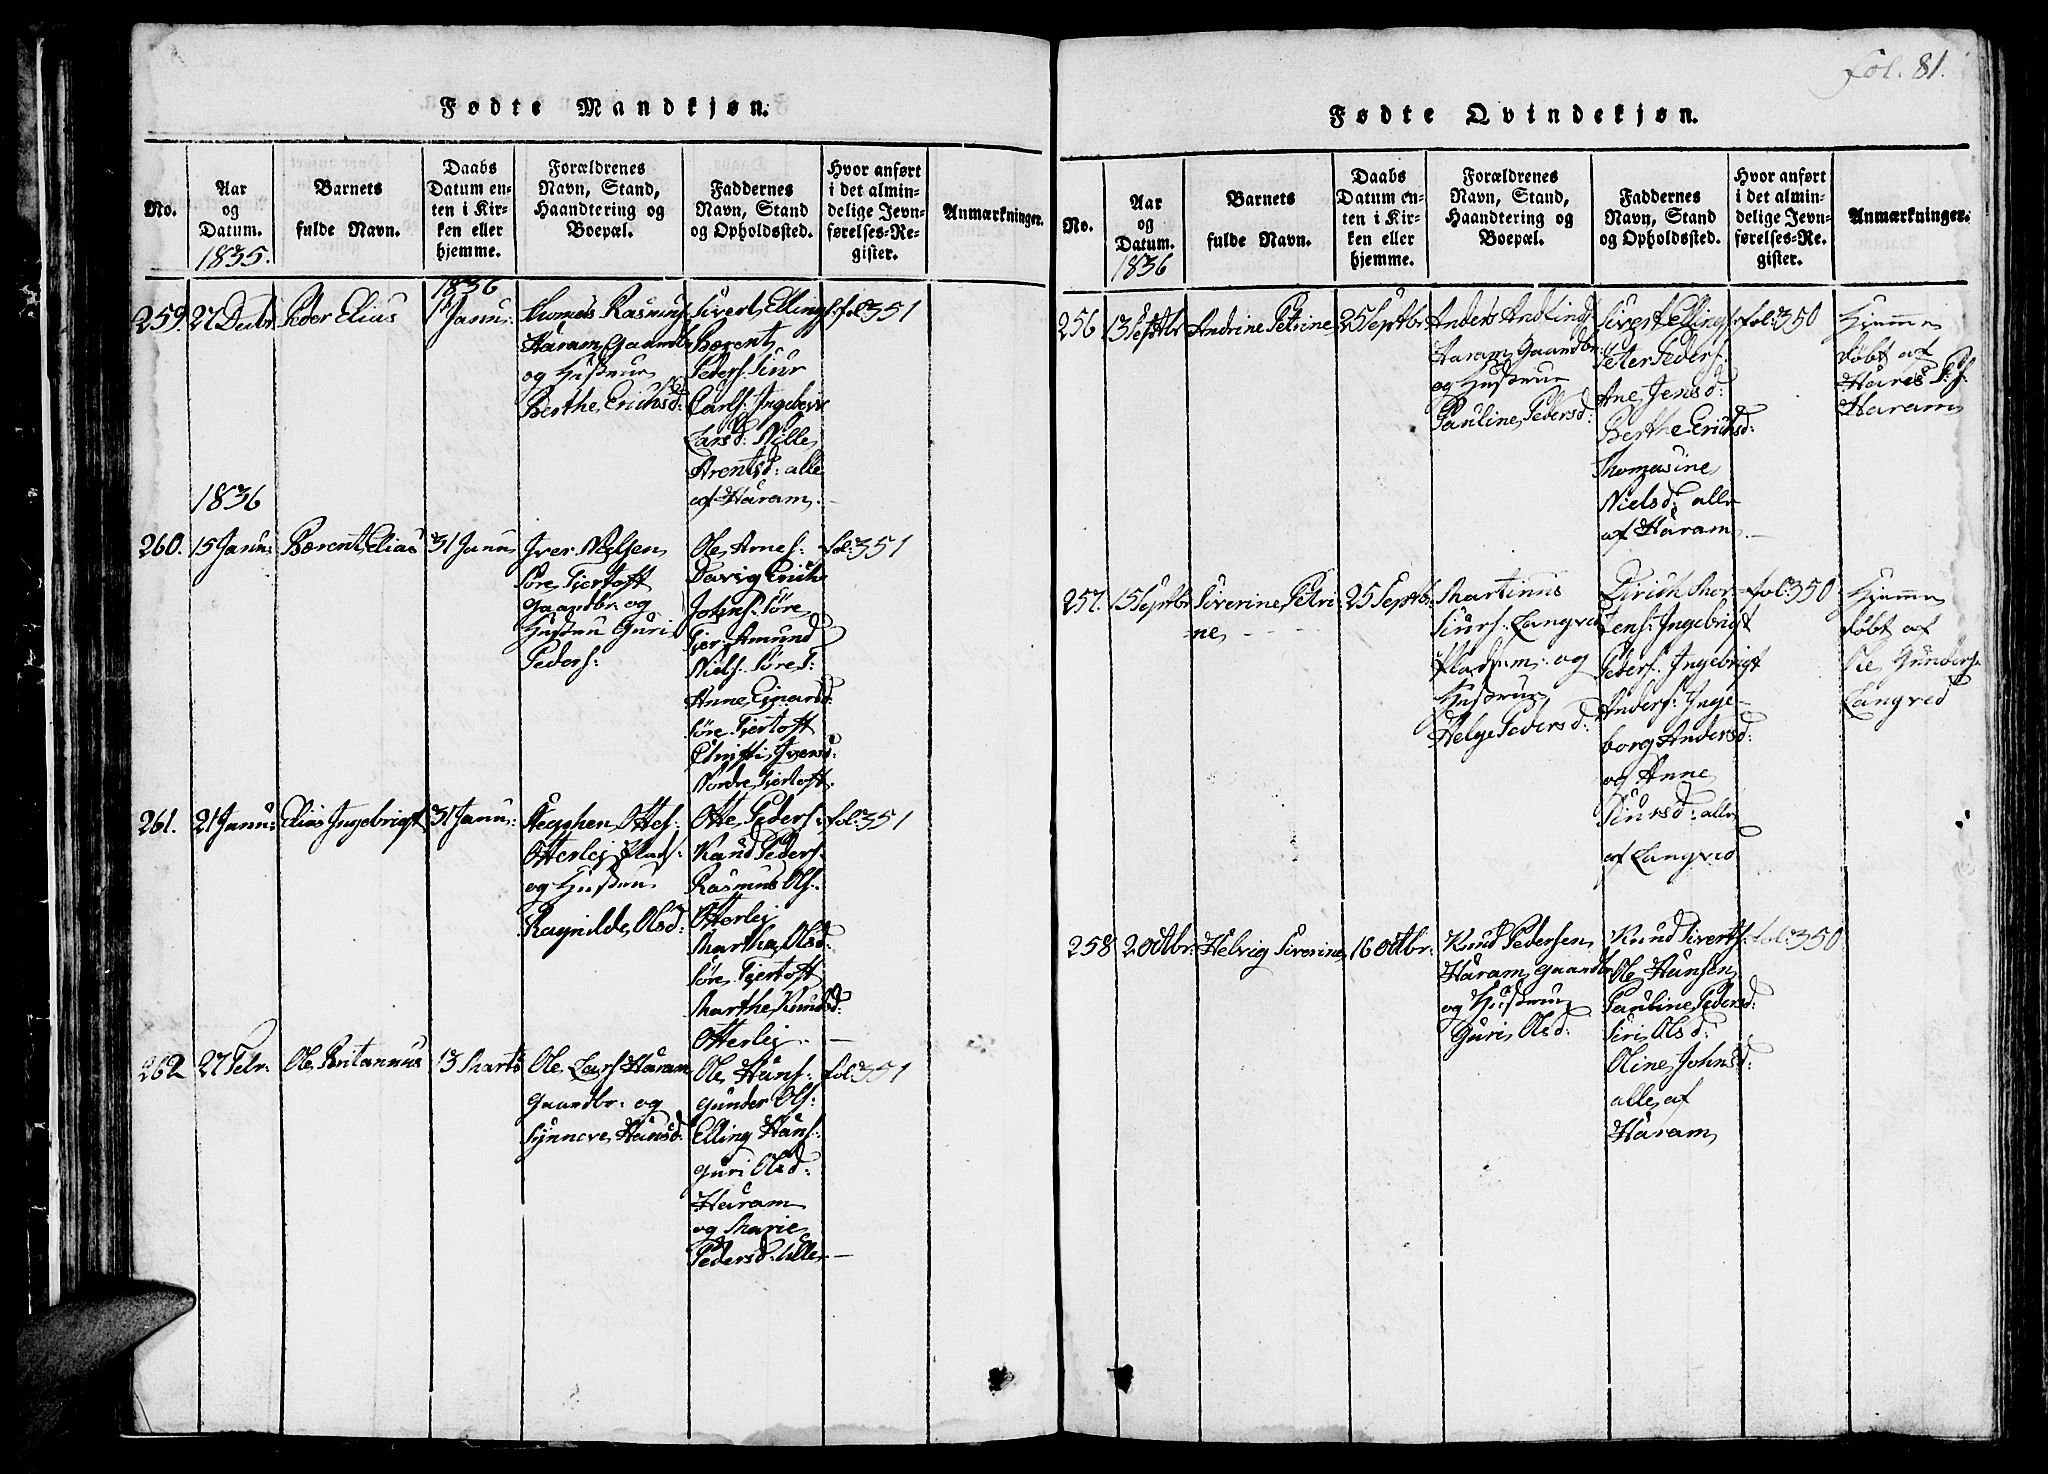 fol. 81.
Fødte Mandkjøn.
No.
Aar
og
Datum.
1835.
Barnets
fulde Navn.
Daabs
Datum en-
ten i Kir-
ken eller
hjemme.
Forældrenes
Navn, Stand,
Haandtering og
Boepæl.
Faddernes
Navn, Stand
og Opholdssted.
Hvor anført
i det almin-
delige Jevn-
førelses-Re-
gister.
Anmærkninger.
259.
27 Decbr
Peder Elius
1836
1 Janu:
Thomas Rasmus
Haram Gaardbr
og Hustrue
Berthe Erichsd:
Sivert Ellings:
Bærent
Peders: Siur
Carls: Ingebor
Larsd: Nille
Arentsd: alle
af Haram.
fol: 351
1836
260.
15 Janu:
Bærent Elias
31 Janu
Iver Nielsen
Søre Fiertoft
Gaardbr: og
Hustru Guri
Peders:
Ole Arnes:
Davig Erich
Johns: Søre
Fier: Amund
Niels: Søre F:
Anne Einarsd:
Søre Fiertoft
Christi Iversd:
Nordre Fiertoft.
fol: 351
261.
21 Janu:
Elias Ingebrigt
31 Janu:
Stephen Ottes:
Otterlej Plads:
og Hustru
Ragnilde Olsd:
Otte Peders:
Knud Peders:
Rasmus Ols:
Otterlej
Martha Olsd:
Søre Fiertoft
Marthe Knudsd:
Otterlej.
fol: 351
262
27 Febr:
Ole Britannus
13 Marts
Ole Lars: Haram
Gaardbr: og
Synneve Hansd:
Ole Hans:
Gunder Ols:
Elling Hans:
Guri Olsd:
Haram
og Marie
Pedersd: Ulle
fol: 351
Fødte Qvindekjøn.
No.
Aar
og
Datum.
1836
Barnets
fulde Navn.
Daabs
Datum en-
ten i Kir-
ken eller
hjemme.
Forældrenes
Navn, Stand,
Haandtering og
Boepæl.
Faddernes
Navn, Stand
og Opholdssted.
Hvor anført
i det almin-
delige Jevn-
førelses-Re-
gister.
Anmærkninger.
256
13 Septbr
Andrine Petrine
25 Septbr:
Anders Andfinds
Haram Gaardbr:
og Hustrue
Pauline Pedersd:
Sivert Ellings:
Peter Peders:
Ane Jensd:
Berthe Erichsd:
Thomasine
Nielsd: alle
af Haram.
fol: 350
Hjemme
døbt af
Hans P: S:
Haram
257.
15 Septbr
Siverine Petri-
ne
25 Septb:
Martinus
Siurs: Langved
Pladsm: og
Hustrue
Helge Pedersd:
Dirich Mor-
tens: Ingebrigt
Peders: Ingebrigt
Anders: Inge-
borg Andersd:
og Anne
Siursd: alle
af Langved
fol: 350
Hjemme
døbt af
Ole Gunders:
Langved
258
2 Octbr:
Helvig Siverine
16 Octbr:
Knud Pedersen
Haram Gaardbr
og Hustrue
Guri Olsd:
Knud Siverts:
Ole Hansen
Pauline Pedersd:
Siri Olsd:
Oline Johnsd:
alle af
Haram
fol: 350